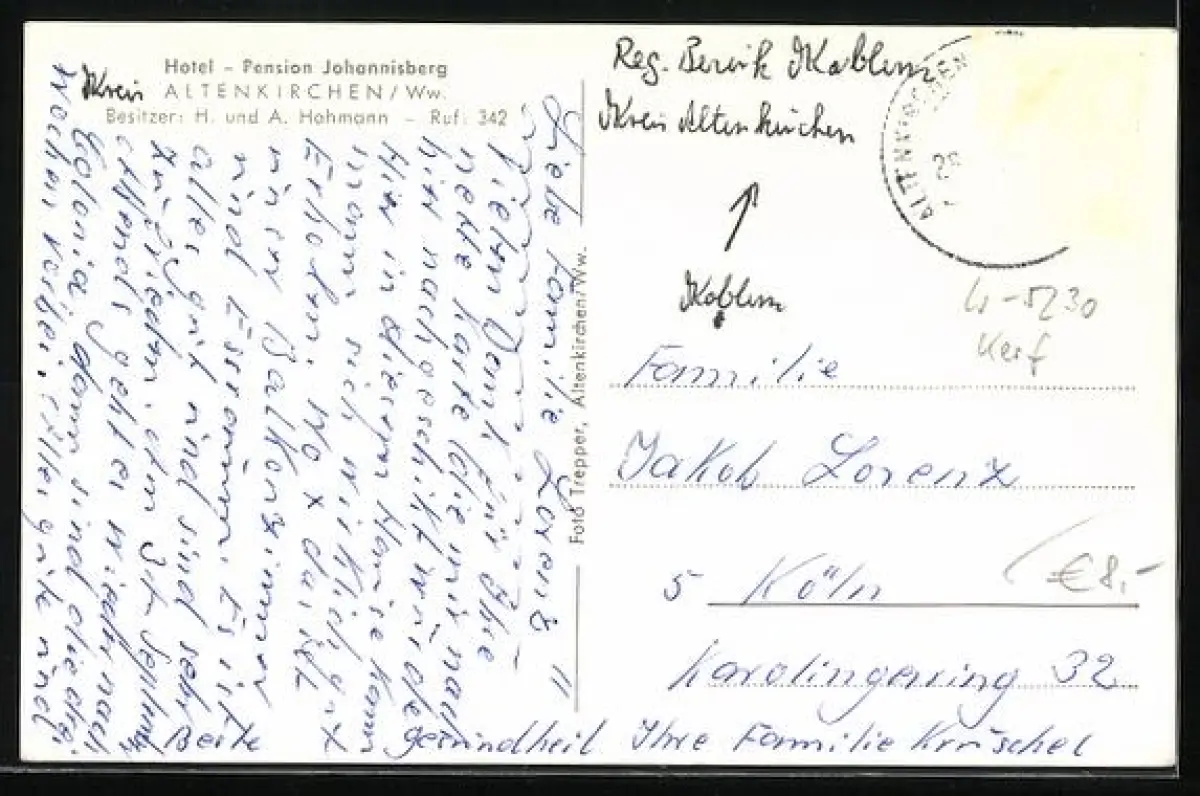 Hotel – Pension Johannisberg
Kreis ALTENKIRCHEN/Ww.
Besitzer: H. und A. Hahmann – Ruf: 342
Liebe Familie Lorenz!!
Vielen Dank für Ihre
nette Karte die mir nach
hir nachgeschikt wurde
Hir in diesem Hause kann
mann sich wirklich gut
Erholen. No x daist
unser Balkonzimmer
und Essraum. Es ist
alles gut und sind sehr
zufrieden. den 3ten
Abends geht es wieder nach
Colonia dann sind die drei
Wochen vorbei. Alles gute und
Beste gesundheit Ihre Familie Krüschel
Foto Trepper, Altenkirchen/Ww.
Reg. Bezirk Koblenz
Kreis Altenkirchen
Koblenz
ALTENKIRCHEN
W-5230
Familie
Jakob Lorenz
5 Köln
€ 8,-
Karolingerring 32